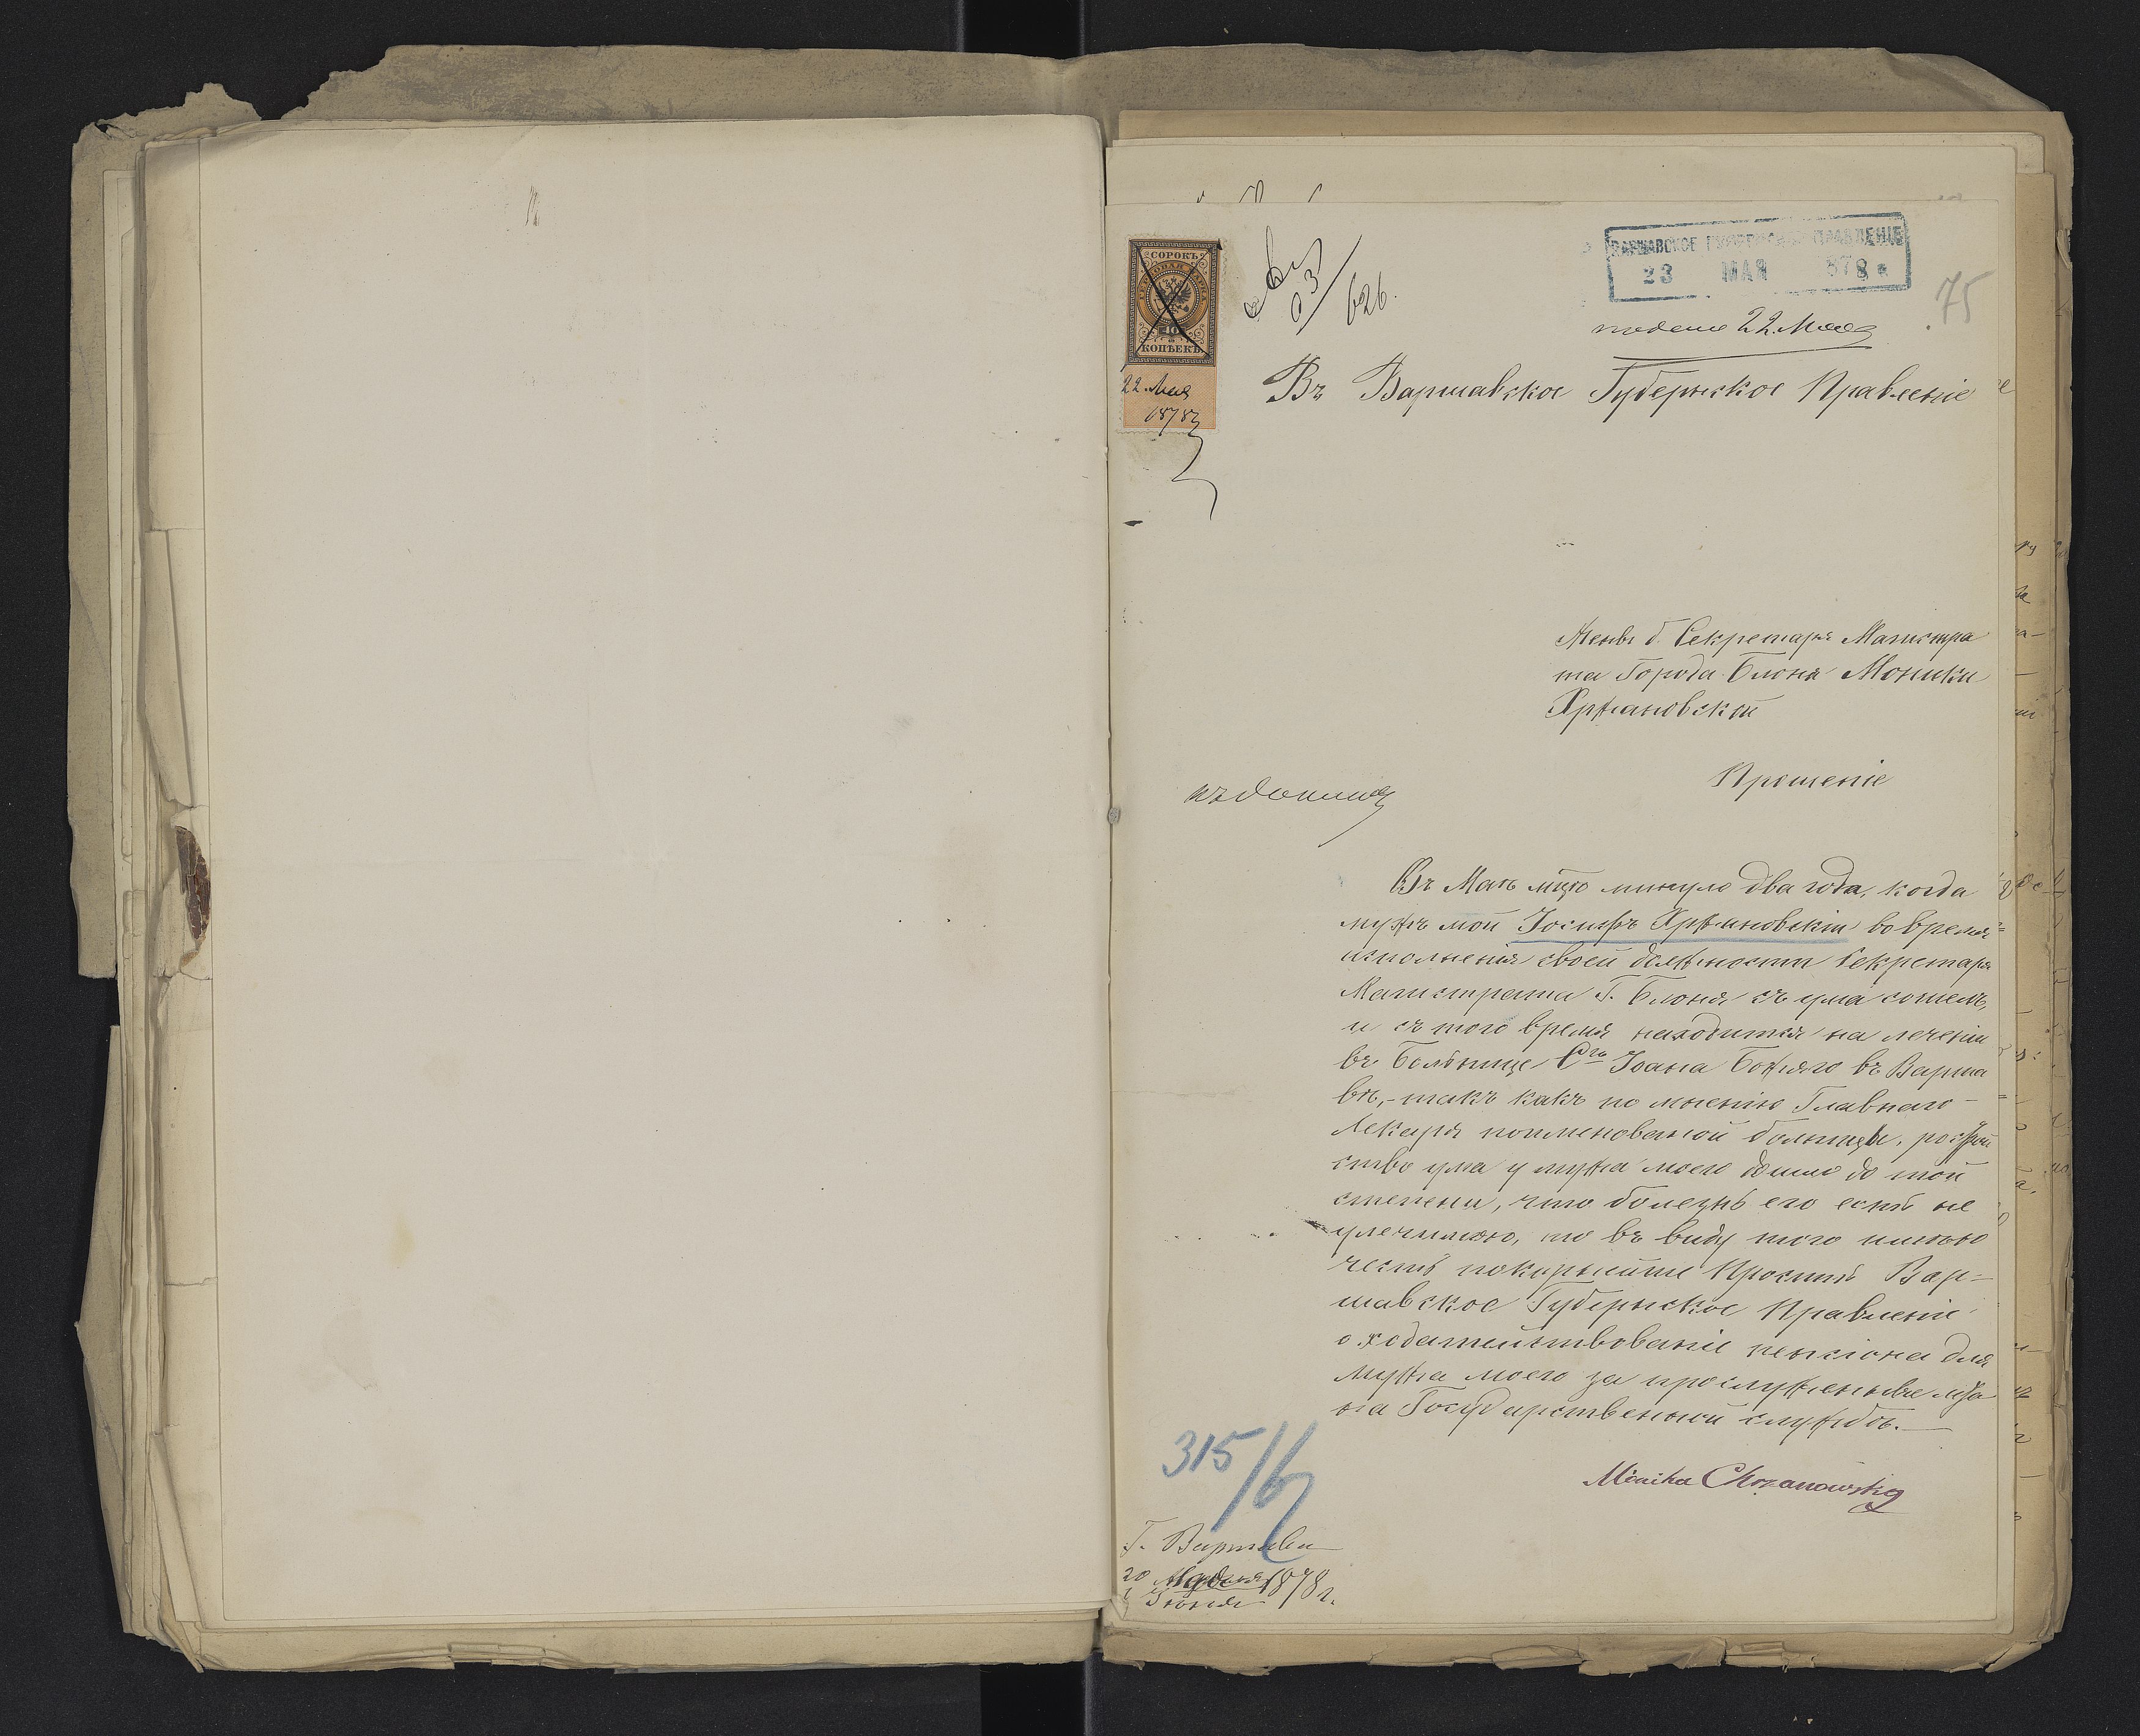 ВАРШАВСКОЕ ГУБЕРНСКОЕ ПРАВЛЕНІЕ
23 МАЯ 878
75
626.
подано 22 Мая
СОРОКЪ
ГЕРБОВАЯ МАРКА
40
КОПѢЕКЪ
22 Мая
1878
Въ Варшавское Губернское Правленіе
Жены б. Секретаря Магистра
та Города Блоня Моники
Хржановской
Прошеніе
Въ Маѣ мцѣ минуло два года, когда
мужъ мой Іосифъ Хржановскій во время
исполненія своей должности Секретаря
Магистрата Г. Блоня съ ума сошелъ,
и съ того время находится на леченіи
въ Больнице Сго Іоана Божяго въ Варша
вѣ,- такъ какъ по мненію Главнаго
Лекаря поименованой больницы, розстрой
ство ума у мужа моего дошло до той
степени, что болезнь его есть не
улечимою, то въ виду того имѣю
честь покорнѣйше Просить Вар-
шавское Губернское Правленіе
о ходатействованіе пенсіона для
мужа моего за прослуженые лѣта
на Государственной службѣ.—
Monika Chrzanowska
315/6
Г. Варшава
20 Мая
1 Іюня 1878 г.